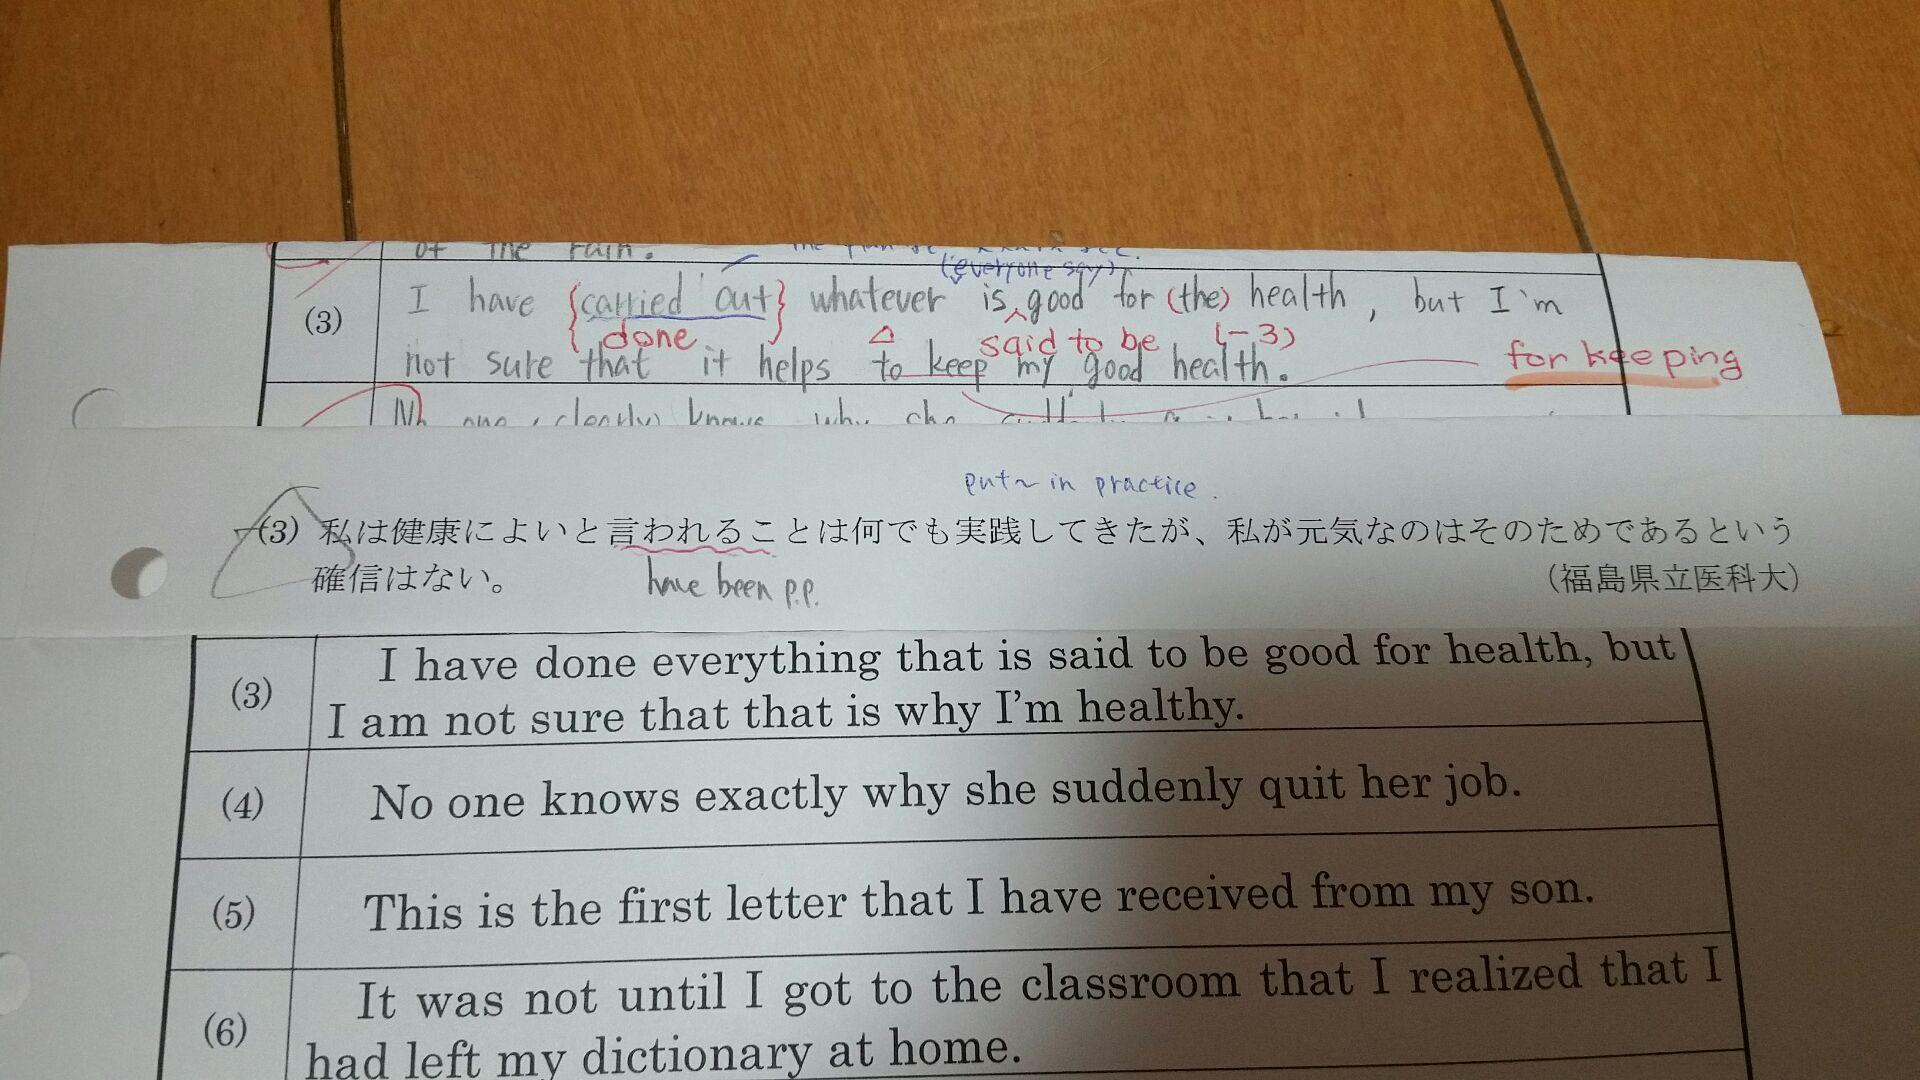 of the rain.
(everyone say)
(3) I have {carried out} whatever is good for (the) health, but I'm
done said to be (-3)
not sure that it helps to keep my good health.
for keeping
No one (clearly) knows why she
put~in practice.
(3) 私は健康によいと言われることは何でも実践してきたが、私が元気なのはそのためであるという
確信はない。 (福島県立医科大)
have been p.p.
(3) I have done everything that is said to be good for health, but
I am not sure that that is why I'm healthy.
(4) No one knows exactly why she suddenly quit her job.
(5) This is the first letter that I have received from my son.
(6) It was not until I got to the classroom that I realized that I
had left my dictionary at home.